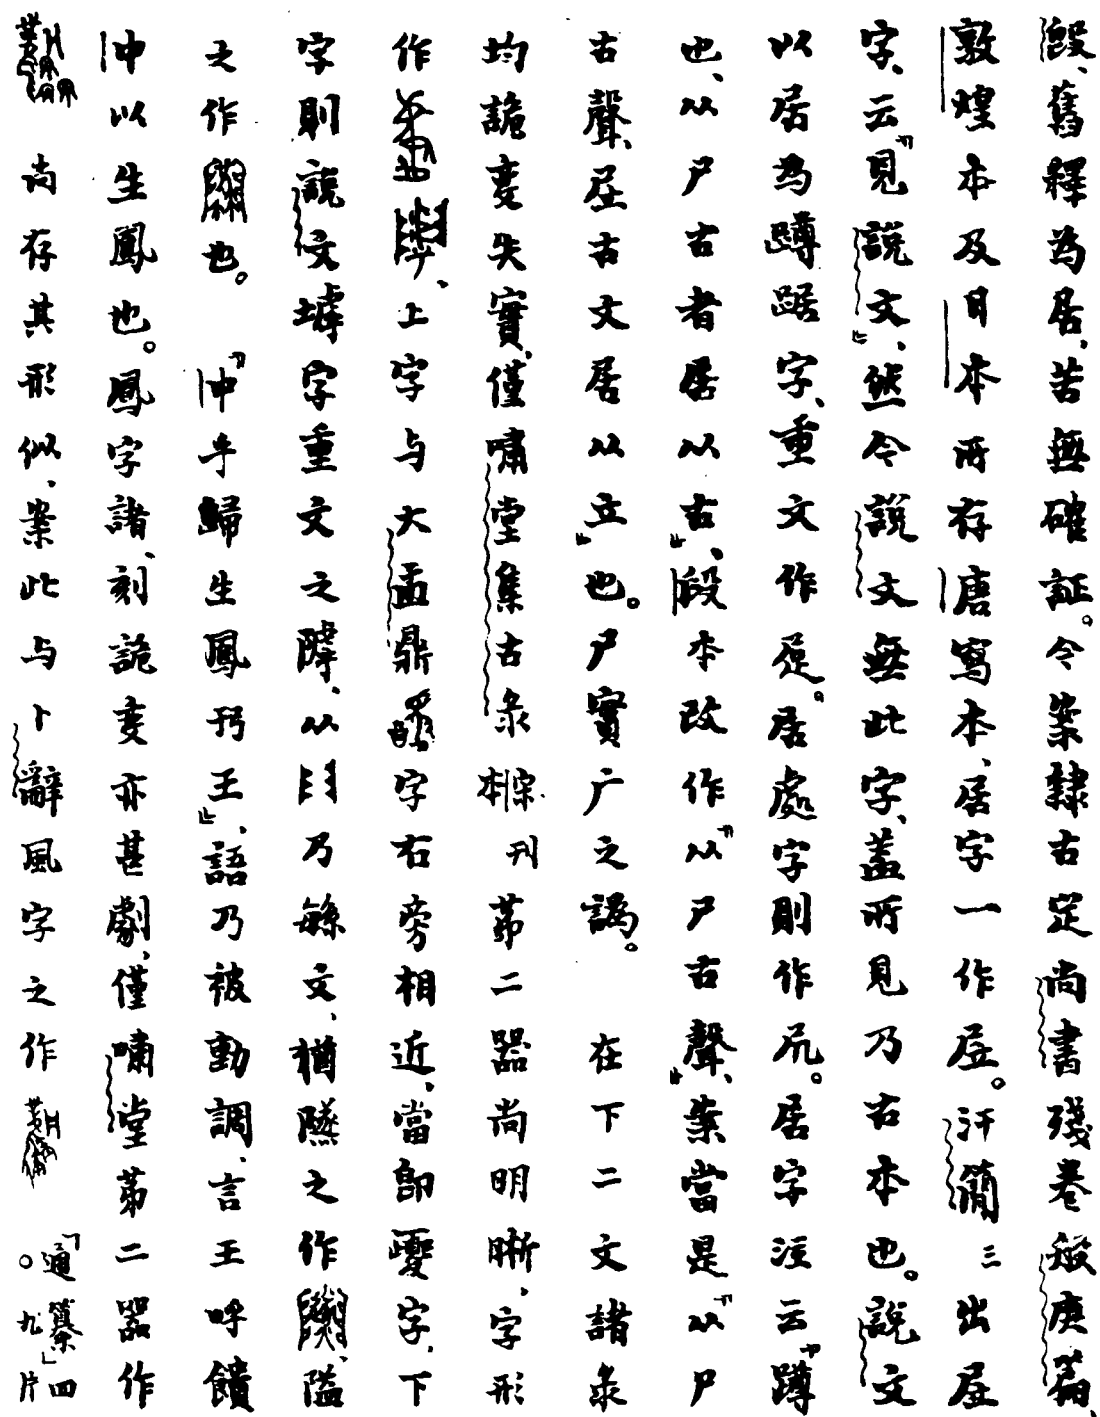 毁、舊釋為居、苦無確証。今案隸古定尚書殘卷般庚篇、
敦煌本及日本所存唐寫本、居字一作㞐。汗簡三出㞐
字、云「見說文」、然今說文無此字、蓋所見乃古本也。說文
以居為蹲踞字、重文作𡱒。居處字則作凥。居字注云「蹲
也、从尸古者居从古」、段本改作「从尸古聲」、案當是「从尸
古聲、㞐古文居从立」也。尸實广之譌。 在下二文諸彔
均詭變失實、僅嘯堂集古彔宋刊本第二器尚明晰、字形
作 、上字与大盂鼎 字右旁相近、當卽夒字、下
字則說文㙤字重文之𨻰、从 乃緐文、猶隧之作 、隘
之作 也。「中乎歸生鳳于王」、語乃被動調、言王呼饋
中以生鳳也。鳳字諸刻詭變亦甚劇、僅嘯堂第二器作
尚存其形似、案此与卜辭風字之作 「通纂」四九片。